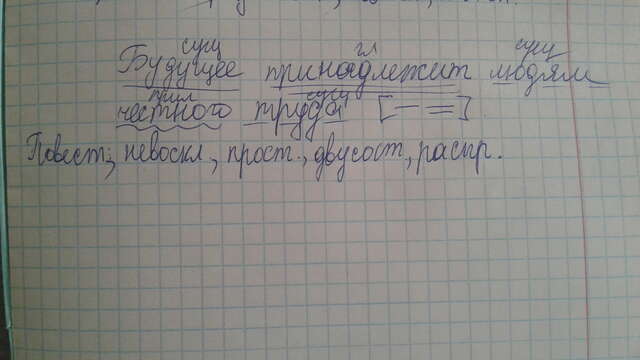 сущ гл сущ
Будущее принадлежит людям
прил сущ
честного труда [— =]
Повест., невоскл., прост., двусост., распр.